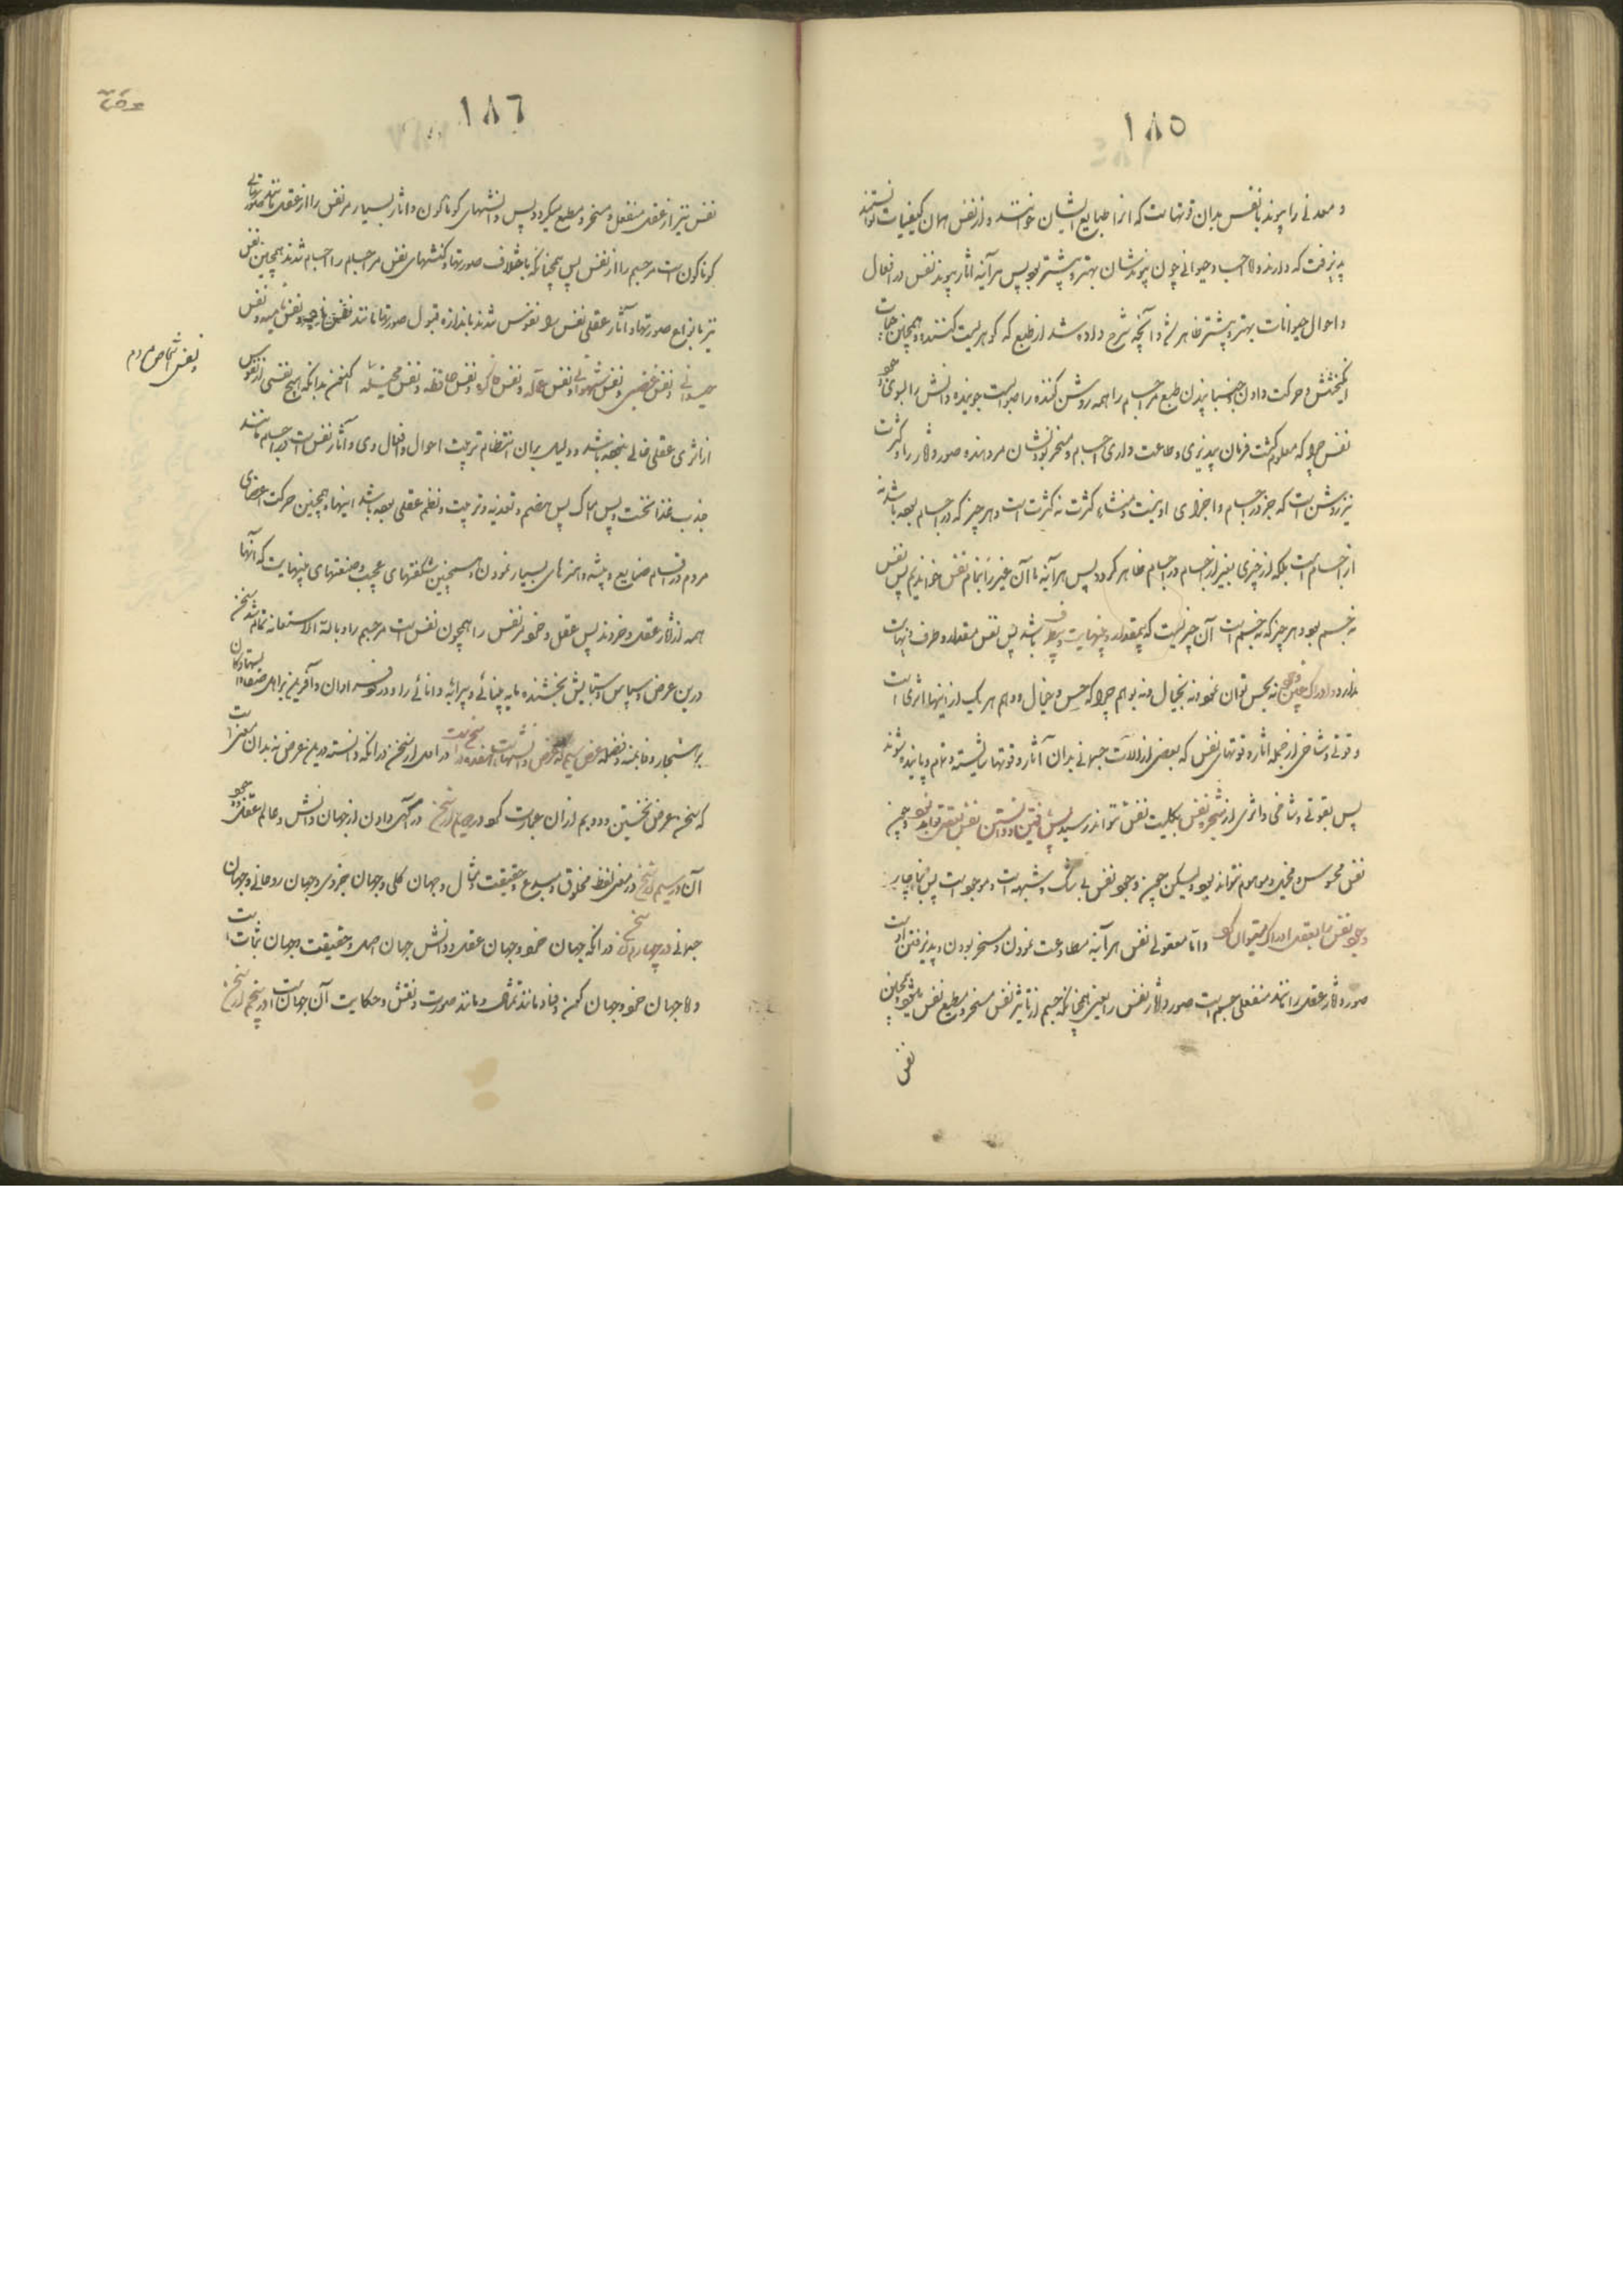 ١٨٥
و معدنی را پیوند با نفس بدان قوتهاست که انرا طبایع ایشان خوانند و از نفس همان کیفیات توانستند
پذیرفت که دارند و اجساد حیوانی چون پیوندشان بهتر و بیشتر بود پس هرآینه اثار پیوند نفس در افعال
و احوال حیوانات بهتر و بیشتر ظاهر شد و آنچه شرح داده شد از طبع که گوهریست کننده و همچنین حیات
انگیختن و حرکت دادن و جنبانیدن طبع مر اجسام را همه روشن کننده راه است جوینده دانش را بسوی وجود
نفس چرا که معلوم گشت فرمان پذیری و طاعت داری اجسام و مسخر بودنشان مر دهنده صور و آثار را و کثرت
نیز روشن است که جز در اجسام و اجزای او نیست و منشاء کثرت نه کثرت است و هر چیز که در اجسام بود باشد نه
از اجسام است بلکه از چیزی بغیر از اجسام در اجسام ظاهر گردد پس هرآینه ما آن غیر را بنام نفس خواندیم پس نفس
نه جسم بود و هر چیز که نه جسم است آن چیز نیست که بمقدار و بنهایت و بطرف باشد پس نفس مقدار و طرف و نهایت
ندارد و ادراک چنین وجود نه بحس توان نمود نه بخیال و نه بوهم چرا که حس و خیال و وهم هر یک از اینها اثری است
و قوتی و شاخی از جمله اثار و قوتهای نفس که بعضی از آلات جسمانی بدان آثار و قوتها شایسته و تمام و پاینده شوند
پس بقوتی و شاخی و اثری از شجره نفس بکلیت نفس نتواند رسید پس یقین و دانستن نفس بعقل تواند بود و چون
نفس محسوس و مخیل و موهوم نتواند بود و لیکن چون وجود نفس بی شک و شبهه است و موجود است پس بناچار
وجود نفس را بعقل ادراک میتوان کرد و اما معقولی نفس هرآینه مطاوعت نمودن و مسخر بودن و پذیرفتن اوست
صور و آثار عقل را مانند منفعلی جسم است صور و آثار نفس را یعنی همچنانکه جسم از تاثیر نفس مسخر و مطیع نفس میشود همچنین
نفس
١٨٦
نفس نیز از عقل منفعل و مسخر و مطیع میگردد پس دانشهای کوناکون و اثار بسیار مر نفس را از عقل مانند صورتهای
کوناکون است مر جسم را از نفس پس همچنانکه باختلاف صورتها و کنشهای نفس مر اجسام را اجسام شدند همچنین نفس
نیز بانواع صورتها و آثار عقلی نفس و نفوس شدند باندازه قبول صورتها مانند نفس و نفس نامیه و نفس
حیوانی و نفس غضبی و نفس شهوانی و نفس عاقله و نفس ذاکره و نفس حافظه و نفس متخیله اکنون بدانکه هیچ نفسی از نفوس
از اثری عقلی خالی نبوده باشد و دلیل بران انتظام ترتیب احوال و افعال وی و آثار نفس است در اجسام مانند
جذب غذا نخست و پس امساک پس هضم و تغذیه و تربیت و نظم عقلی بوده باشد اینها و همچنین حرکت اعضای
مردم در اقسام صنایع و پیشه و هنرهای بسیار نمودن و همچنین شکفتهای عجیب و صنعتهای بینهایت که آنها
همه از آثار عقل و خردند پس عقل و خرد مر نفس را همچون نفس است مر جسم را و بالله الاستعانه تمام شد سخن
درین عرض و سپاس و ستایش بخشنده مایه بینائی و پیرایه دانائی را و درود فراوان و آفرین بر اهل صفا
که سخن عرض نخستین و دویم ازان عبارت کرد در دویم از سخن در آگهی دادن از جهان دانش و عالم عقلی و وجود
آن در سیم از سخن در معنی لفظ مخلوق و مبدع و حقیقت و مثال و جهان کلی و جهان جزوی و جهان روحانی و جهان
جسمانی در چهارم از سخن در آنکه جهان خرد و جهان عقل و دانش جهان اصل و حقیقت و جهان ثبات است
و اما جهان خرد و جهان کون و فساد مانند تمثال و مانند صورت و نقش و حکایت آن جهان است در پنجم از سخن
و نفس اشخاص مردم